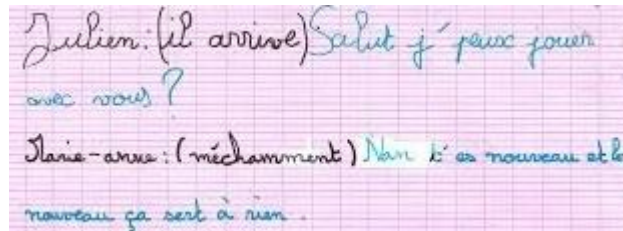 Julien : (il arrive) Salut j' peux jouer
avec vous ?
Marie-anne : (méchamment) Nan t' es nouveau et le
nouveau ça sert à rien .